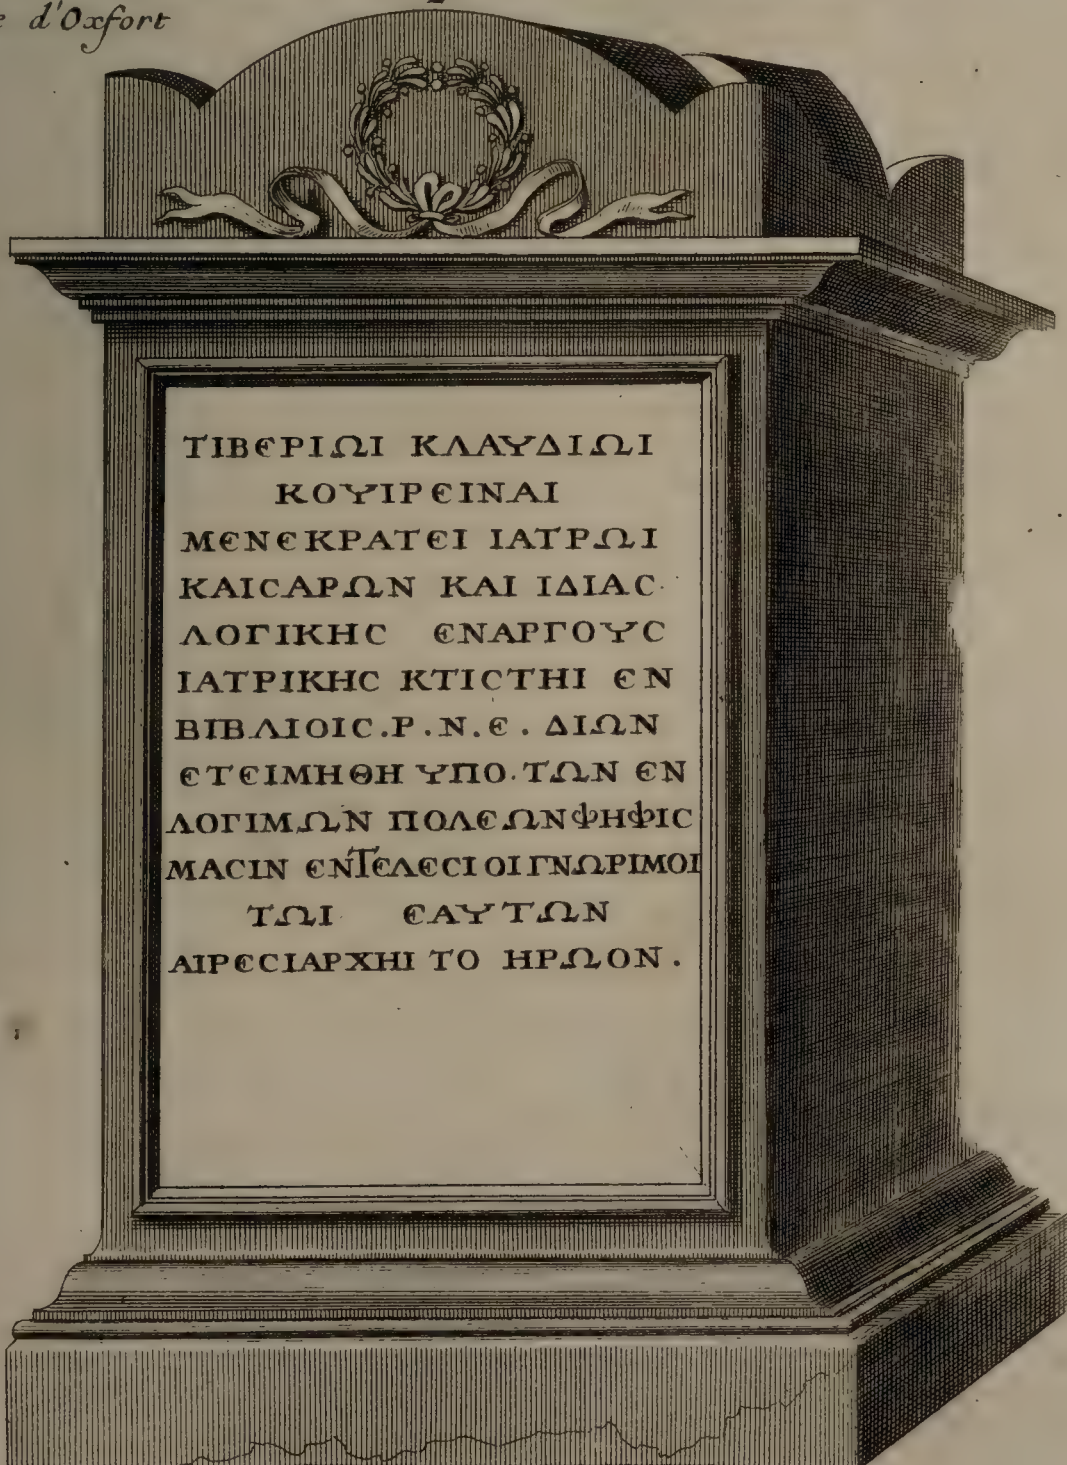 d'Oxfort
ΤΙΒΕΡΙΩΙ ΚΛΑΥΔΙΩΙ
ΚΟΥΙΡΕΙΝΑΙ
ΜΕΝΕΚΡΑΤΕΙ ΙΑΤΡΩΙ
ΚΑΙϹΑΡΩΝ ΚΑΙ ΙΔΙΑϹ
ΛΟΓΙΚΗϹ ΕΝΑΡΓΟΥϹ
ΙΑΤΡΙΚΗϹ ΚΤΙϹΤΗΙ ΕΝ
ΒΙΒΛΙΟΙϹ.Ρ.Ν.Ε. ΔΙΩΝ
ΕΤΕΙΜΗΘΗ ΥΠΟ.ΤΩΝ ΕΝ
ΛΟΓΙΜΩΝ ΠΟΛΕΩΝ ΦΗΦΙϹ
ΜΑϹΙΝ ΕΝΤΕΛΕϹΙ ΟΙ ΓΝΩΡΙΜΟΙ
ΤΩΙ ΕΑΥΤΩΝ
ΑΙΡΕϹΙΑΡΧΗΙ ΤΟ ΗΡΩΟΝ.